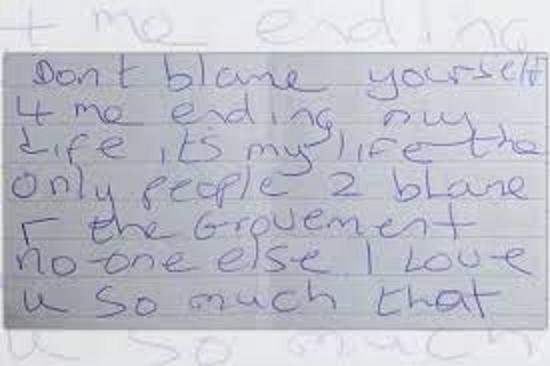 4 me ending
Dont blame yourself
4 me ending my
Life its my life the
only people 2 blame
r the Grovement
no-one else I Love
u so much that
u so much